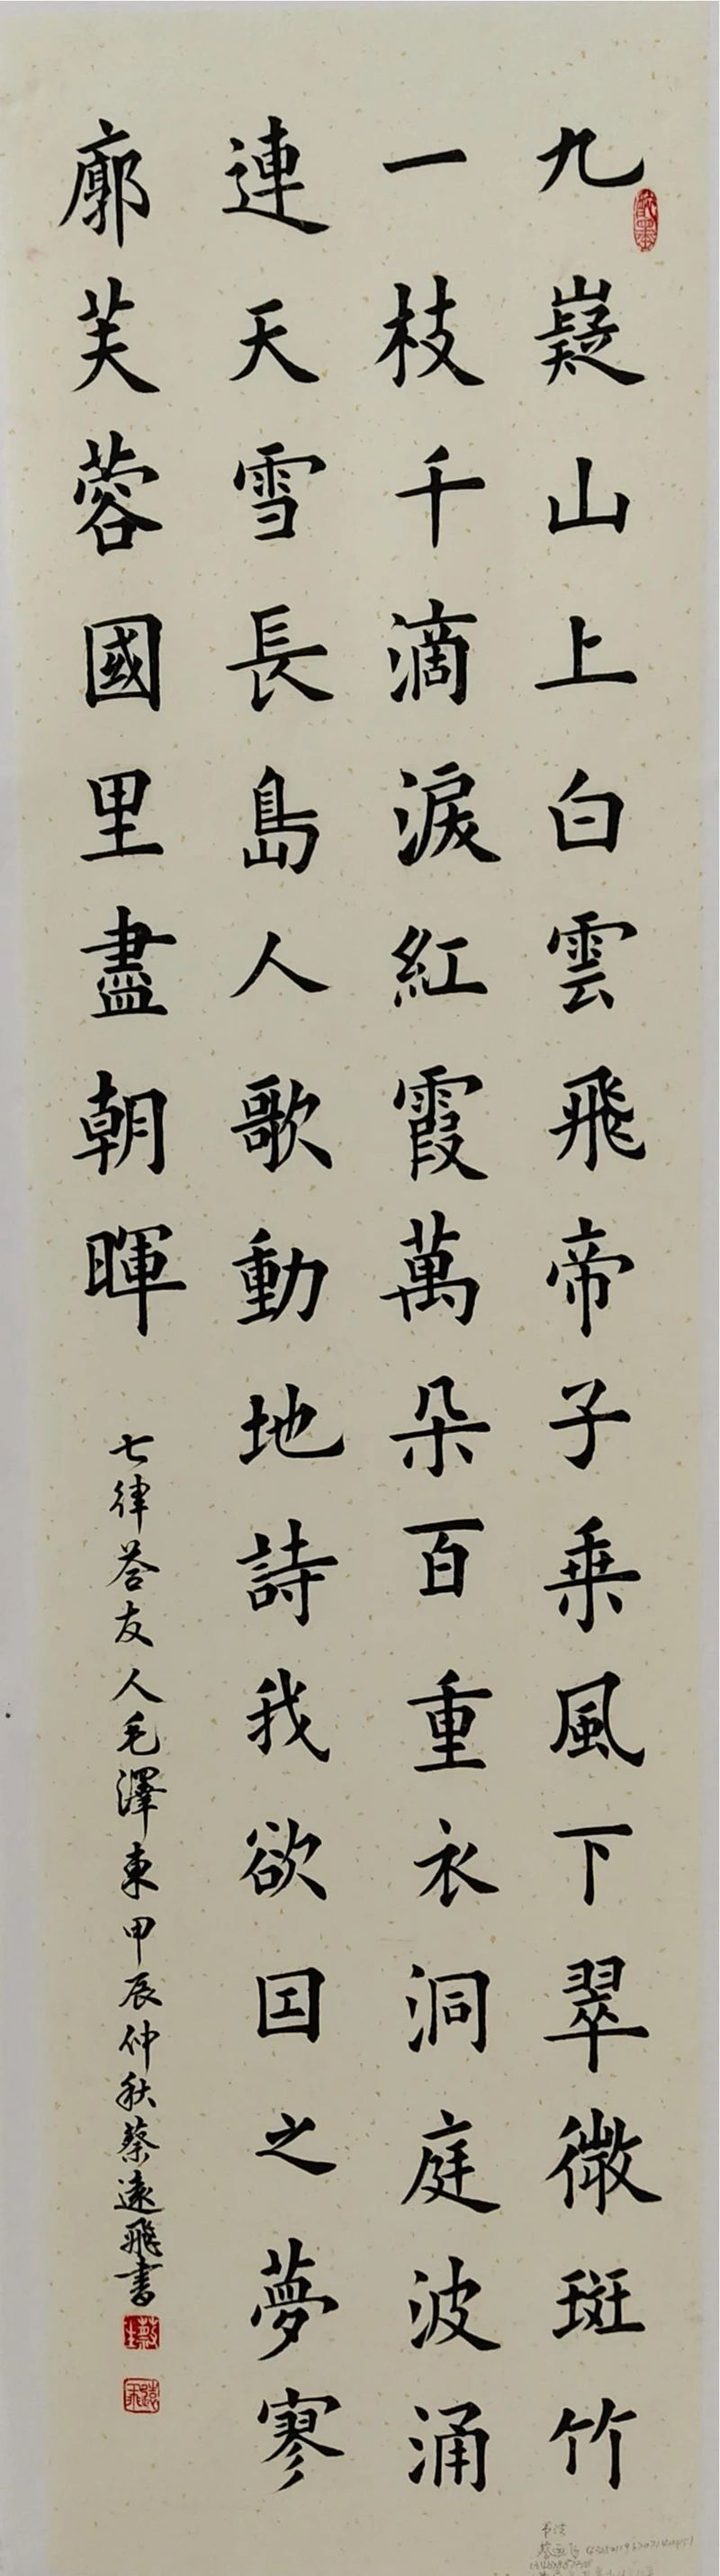 九嶷山上白雲飛帝子乗風下翠微斑竹
一枝千滴淚紅霞萬朵百重衣洞庭波涌
連天雪長島人歌動地詩我欲囙之夢寥
廓芙蓉國里盡朝暉
七律答友人毛澤東甲辰仲秋蔡遠飛書